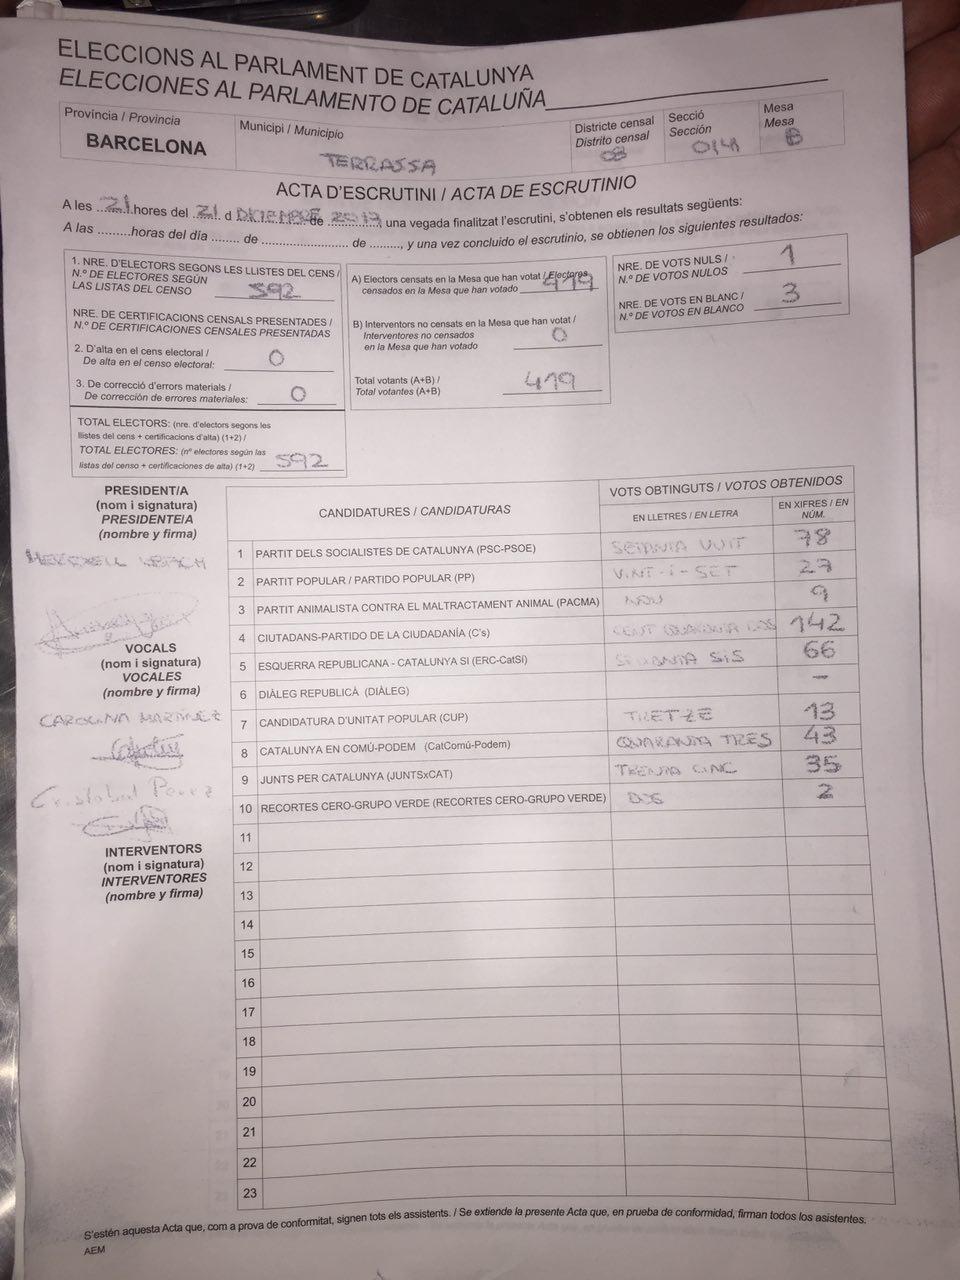 ELECCIONS AL PARLAMENT DE CATALUNYA
ELECCIONES AL PARLAMENTO DE CATALUÑA
Província / Provincia
BARCELONA
Municipi / Municipio
TERRASSA
Districte censal
Distrito censal
Secció
Sección
Mesa
Mesa
B
ACTA D'ESCRUTINI / ACTA DE ESCRUTINIO
A les ..21.hores del .21. d DICIEMBRE de 2017, una vegada finalitzat l'escrutini, s'obtenen els resultats següents:
A las .........horas del día ........ de ...................... de ........, y una vez concluido el escrutinio, se obtienen los siguientes resultados:
1. NRE. D'ELECTORS SEGONS LES LLISTES DEL CENS /
N.º DE ELECTORES SEGÚN
LAS LISTAS DEL CENSO 592
NRE. DE CERTIFICACIONS CENSALS PRESENTADES /
N.º DE CERTIFICACIONES CENSALES PRESENTADAS
2. D'alta en el cens electoral /
De alta en el censo electoral: 0
3. De correcció d'errors materials /
De corrección de errores materiales: 0
TOTAL ELECTORS: (nre. d'electors segons les
llistes del cens + certificacions d'alta) (1+2) /
TOTAL ELECTORES: (nº electores según las
listas del censo + certificaciones de alta) (1+2) 592
A) Electors censats en la Mesa que han votat / Electores
censados en la Mesa que han votado 419
B) Interventors no censats en la Mesa que han votat /
Interventores no censados
en la Mesa que han votado 0
Total votants (A+B) /
Total votantes (A+B) 419
NRE. DE VOTS NULS /
N.º DE VOTOS NULOS 1
NRE. DE VOTS EN BLANC /
N.º DE VOTOS EN BLANCO 3
PRESIDENT/A
(nom i signatura)
PRESIDENTE/A
(nombre y firma)
VOCALS
(nom i signatura)
VOCALES
(nombre y firma)
CAROLINA MARTINEZ
Cristobal Perez
INTERVENTORS
(nom i signatura)
INTERVENTORES
(nombre y firma)
CANDIDATURES / CANDIDATURAS
VOTS OBTINGUTS / VOTOS OBTENIDOS
EN LLETRES / EN LETRA
EN XIFRES / EN NÚM.
1 PARTIT DELS SOCIALISTES DE CATALUNYA (PSC-PSOE) SETANTA VUIT 78
2 PARTIT POPULAR / PARTIDO POPULAR (PP) VINT-I-SET 27
3 PARTIT ANIMALISTA CONTRA EL MALTRACTAMENT ANIMAL (PACMA) NOU 9
4 CIUTADANS-PARTIDO DE LA CIUDADANÍA (C's) CENT QUARANTA DOS 142
5 ESQUERRA REPUBLICANA - CATALUNYA SI (ERC-CatSí) SEIXANTA SIS 66
6 DIÀLEG REPUBLICÀ (DIÀLEG) -
7 CANDIDATURA D'UNITAT POPULAR (CUP) TRETZE 13
8 CATALUNYA EN COMÚ-PODEM (CatComú-Podem) QUARANTA TRES 43
9 JUNTS PER CATALUNYA (JUNTSxCAT) TRENTA CINC 35
10 RECORTES CERO-GRUPO VERDE (RECORTES CERO-GRUPO VERDE) DOS 2
11
12
13
14
15
16
17
18
19
20
21
22
23
S'estén aquesta Acta que, com a prova de conformitat, signen tots els assistents. / Se extiende la presente Acta que, en prueba de conformidad, firman todos los asistentes.
AEM